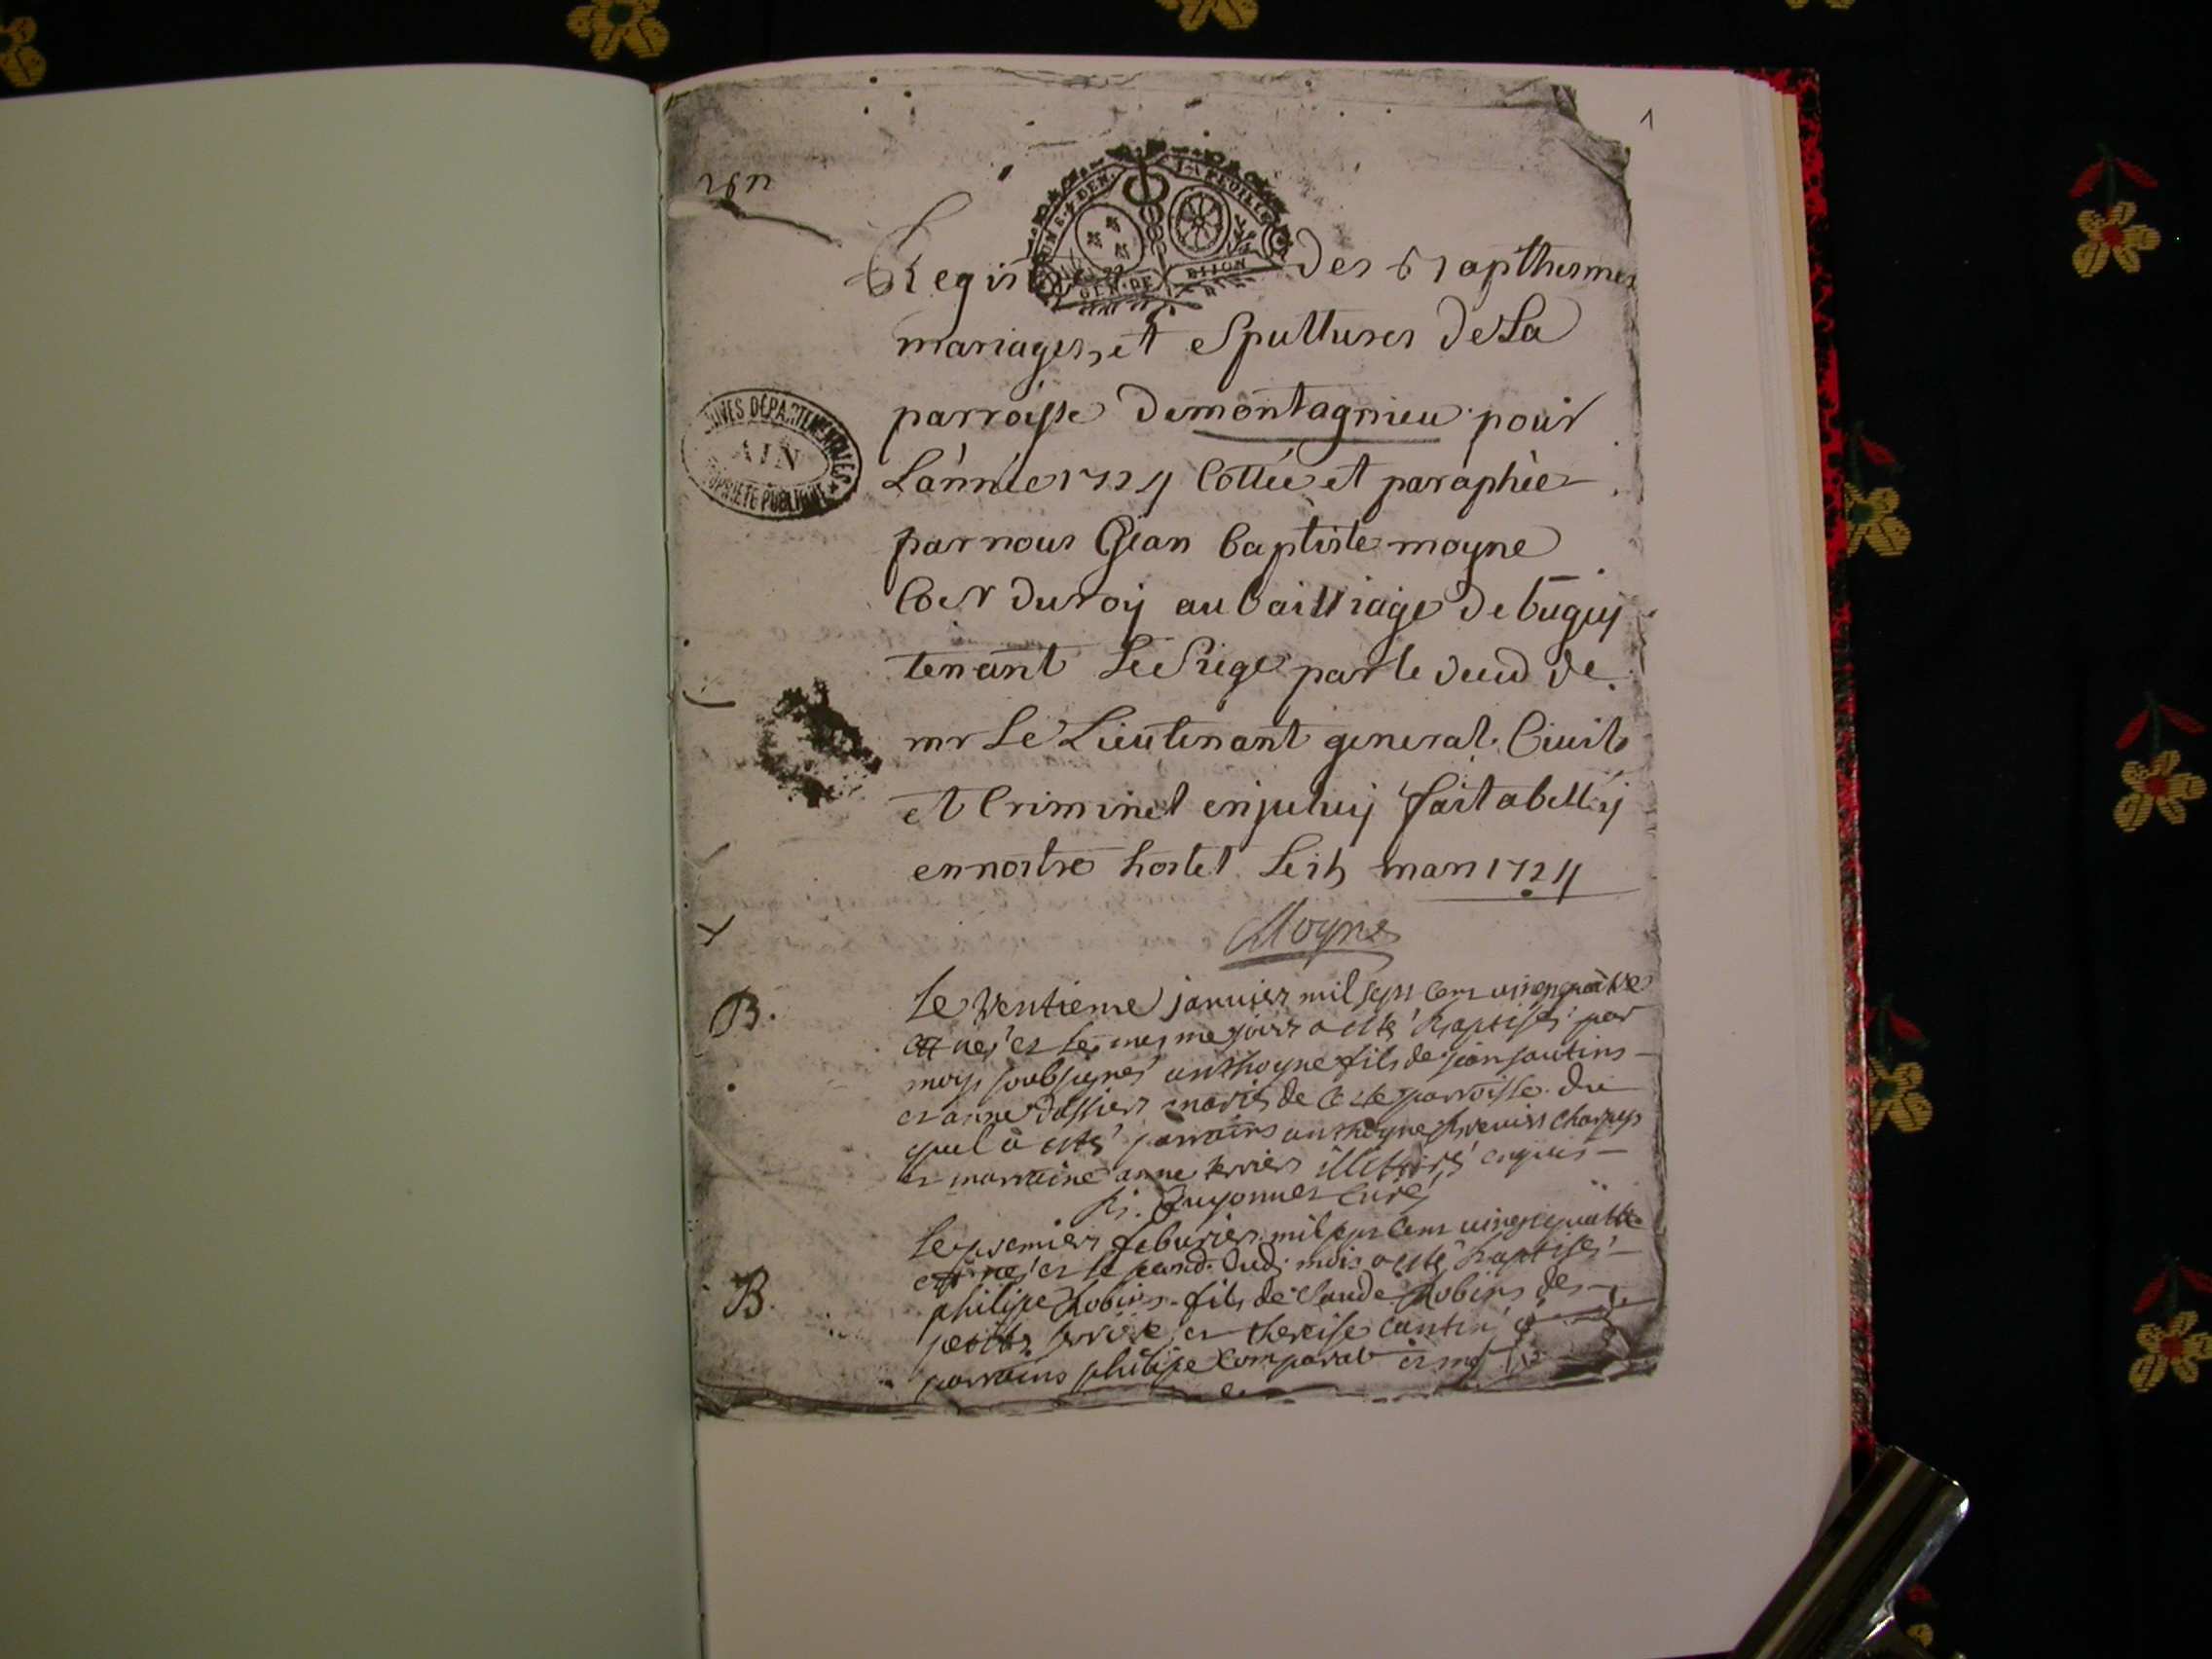 1
UN E. 4 DEN. LA FEUILLE
GEN. DE DIJON
Regist des Bapthesmes
mariages et Spulturer de La
parroisse de montagnieu pour
L'année 1724 Cottée et paraphée
par nous Jean baptiste moyne
Coer du roy au bailliage de bugey
tenant Le Siege par le deced de
mr Le Lieutenant general Civil
et Criminel enjceluy fait a belley
en nostre hostel Le 15 mars 1724
ARCHIVES DÉPARTEMENTALES
AIN
PROPRIÉTÉ PUBLIQUE
Moyne
B.
Le ventieme januier mil sept cent uingt quatre
est né et le mesme jour a esté baptisé par
moy soubsigné anthoyne fils de jean
et anne mariés de ceste parroisse du
quel a esté parrains anthoyne
et marraine anne terrier illitterés enquis
Guyonnet curé
B.
Le premier feburier mil sept cent uingt quatre
est né et le second dud. mois a esté baptisé
philipe Robin fils de Claude Robin des
et theraise
parrains philipe Comparat et